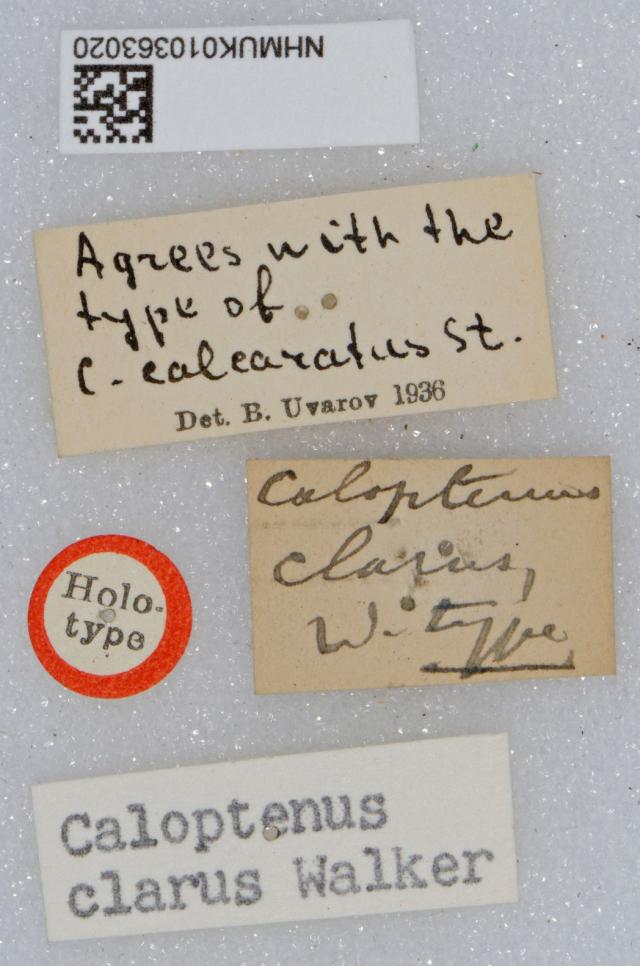 NHMUK010363020
Agrees with the
type of
C. calcaratus St.
Det. B. Uvarov 1936
Caloptenus
clarus,
W. type
Holo-
type
Caloptenus
clarus Walker